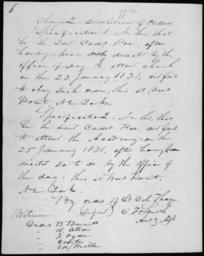 6
Charge 2. disobedience of Orders.
Specification 1. In this, that
the said Cadet Poe, after
having been directed by the
officer of day to attend church
on the 23 January 1831, did fail
to obey such order, this at West
Point, New York.
Specification 2. In this, that
the said Cadet Poe did fail
to attend the Academy on the
25 January 1831, after having been
directed so to do by the officer of
the day: this at West Point,
New York.
By order of Lt Col Thayer
C. F. Smith
Act'g Adjt
Witnesses
Cadet